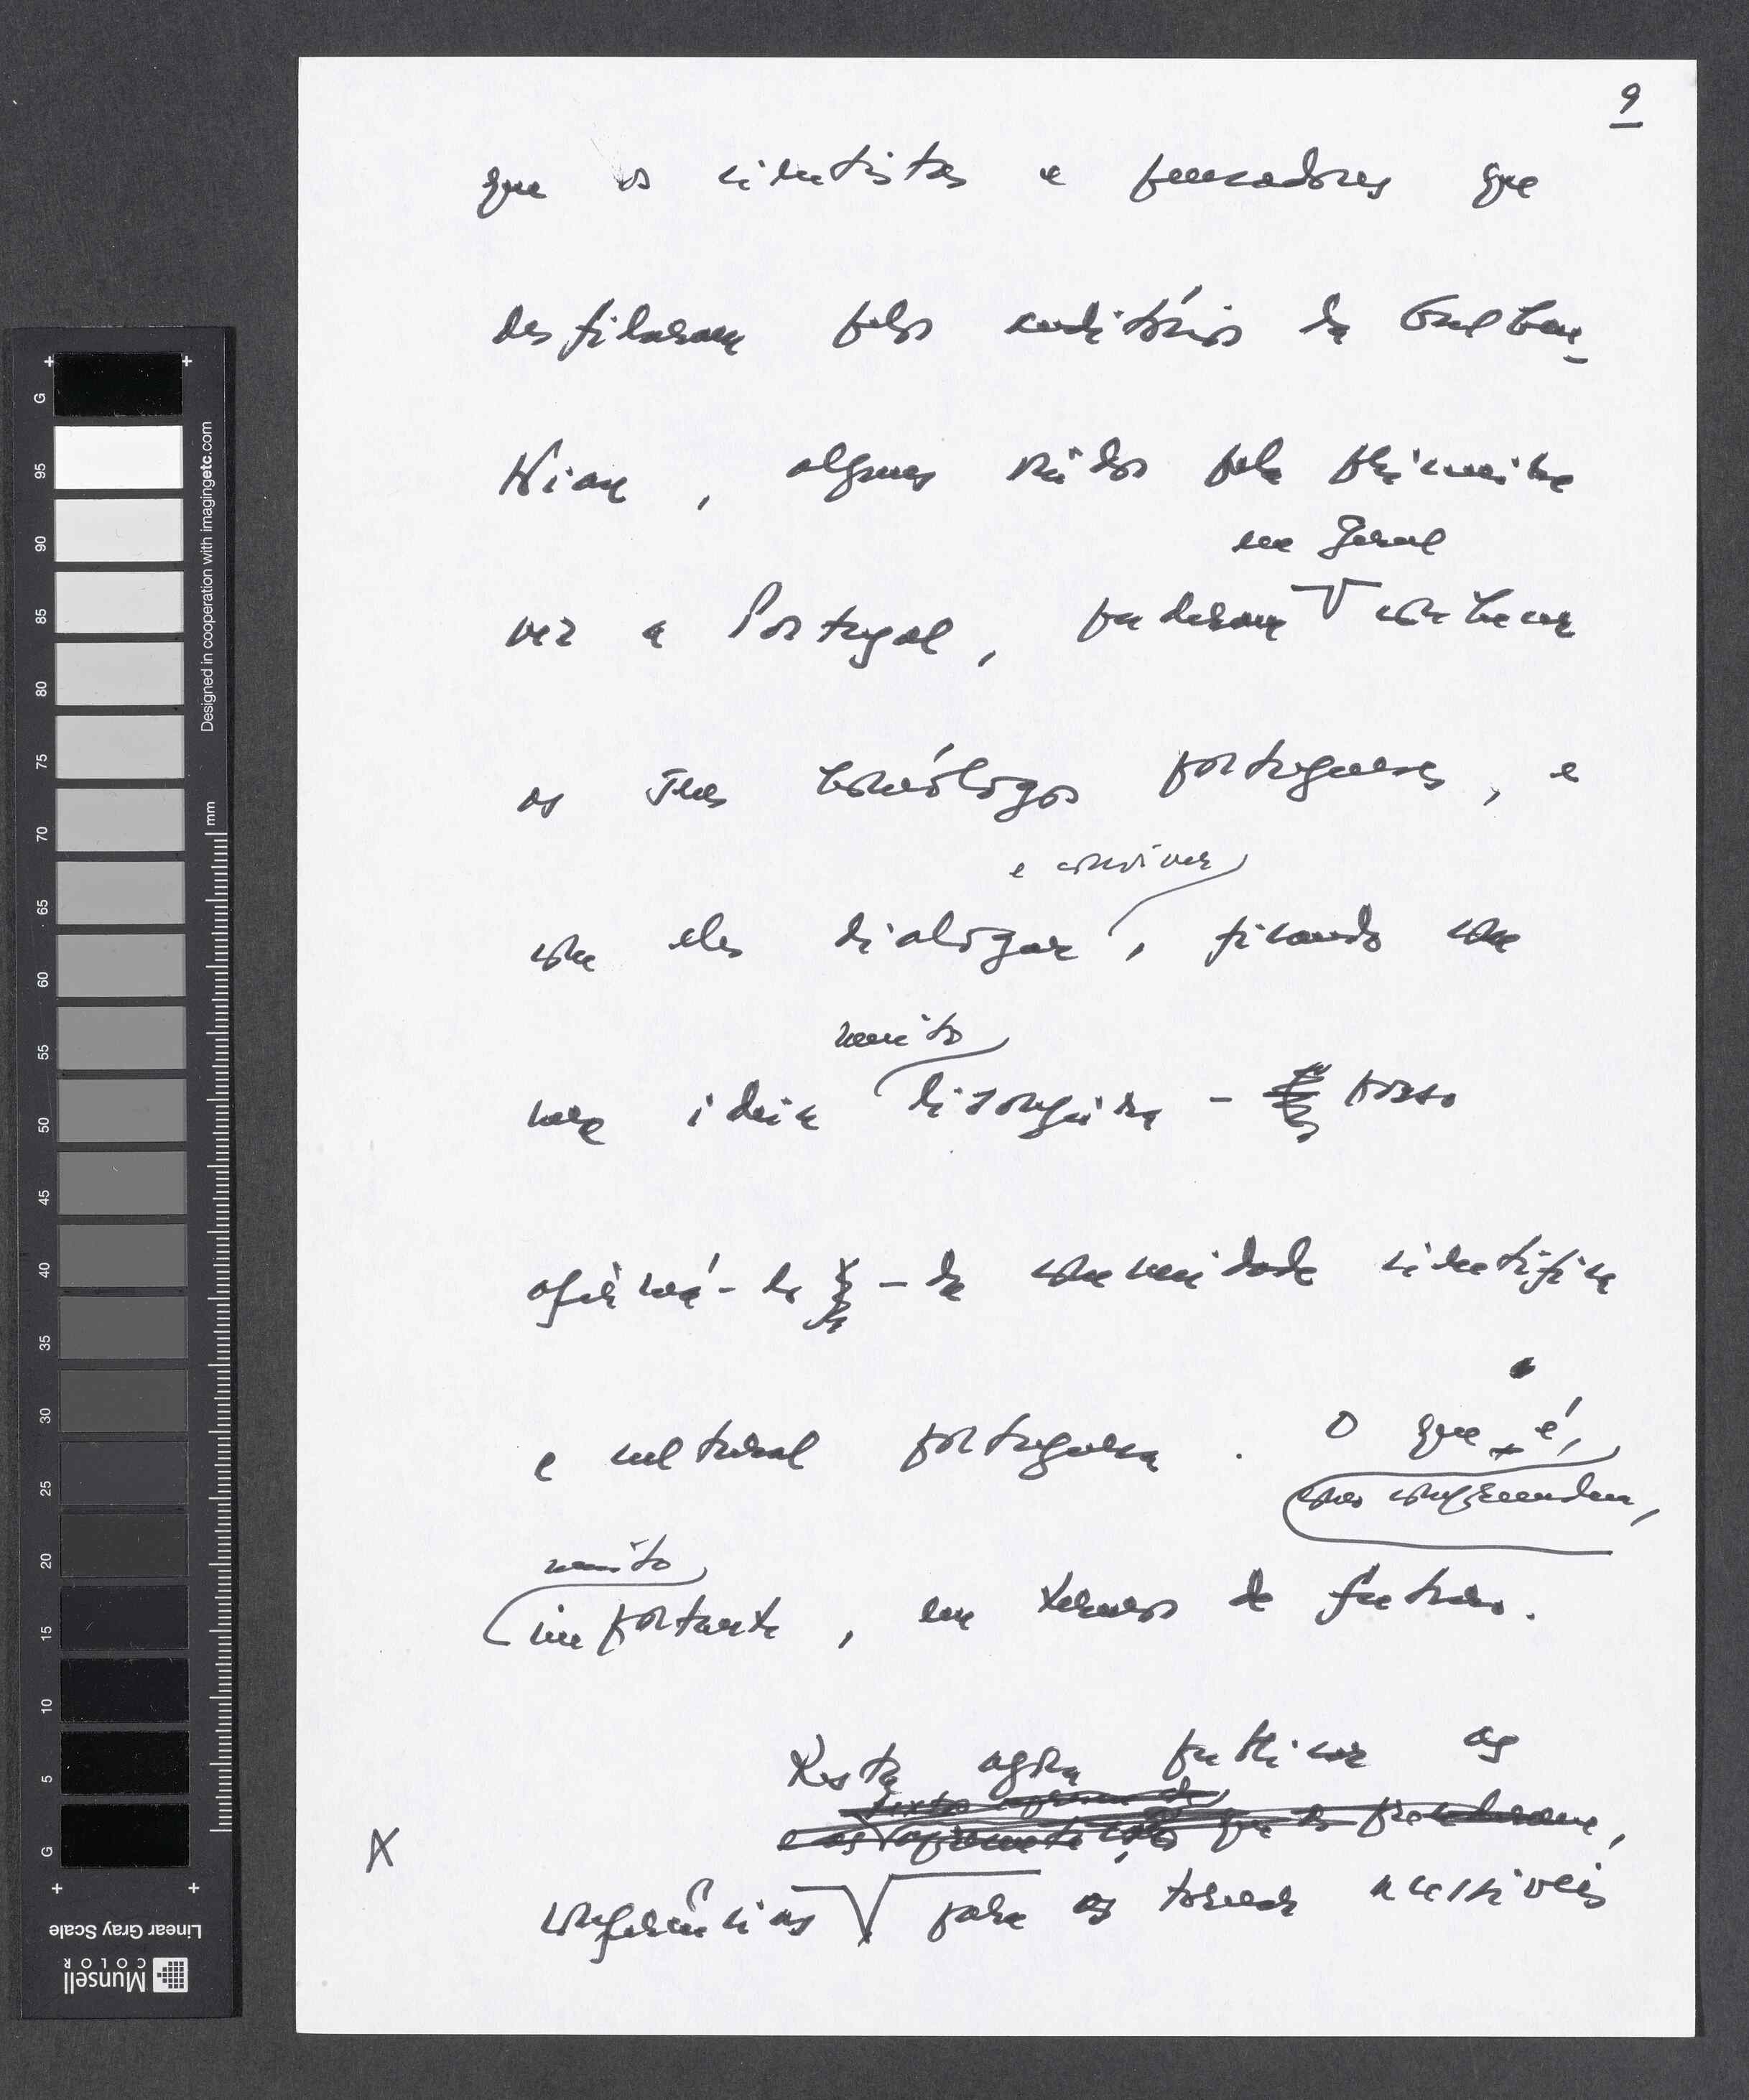 9
que os cientistas e pensadores que
desfilaram pelos auditórios da Gulben-
Kian, alguns vindos pela primeira
em geral
vez a Portugal, puderam conhecer
os seus homólogos portugueses, e
e conviver
com eles dialogar, ficando com
muito
uma ideia lisongeira - posso
afirmá-lo - da comunidade científica
e cultural portuguesa. O que é,
como compreendem,
muito
importante, em termos de futuro.
Resta agora publicar as
textos apresentados
e as que se
X
conferências para as tornar acessíveis
G
95
90
85
80
75
70
65
60
55
50
45
40
35
30
25
20
15
10
5
G
mm
Designed in cooperation with imagingetc.com
Munsell
COLOR
Linear Gray Scale